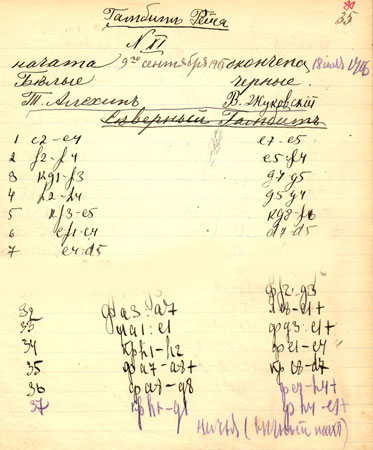 Гамбитъ Гепа
35
N II
начата 9го сентября 1905 окончена 18 іюля 1906
Бѣлые Черные.
Т. Алехинъ В. Жуковскій
Сѣверный Гамбитъ
1 e2-e4 e7-e5
2 f2-f4 e5:f4
3 Kg1-f3 g7 g5
4 h2-h4 g5 g4
5 Kf3-e5 Kg8-f6
6 cf1-c4 d7-d5
7 e4:d5
фf2-g3
32 фa3:a7 Лe8-e1+
33 Лa1:e1 фg3:e1+
34 Kph1-h2 фe1-e4
35 фa7-a8+ Kpc8-d7
36 фa8-g8 фe4-h4+
37 Kph2-g1 фh4-e1+
ничья (вечный шахъ)